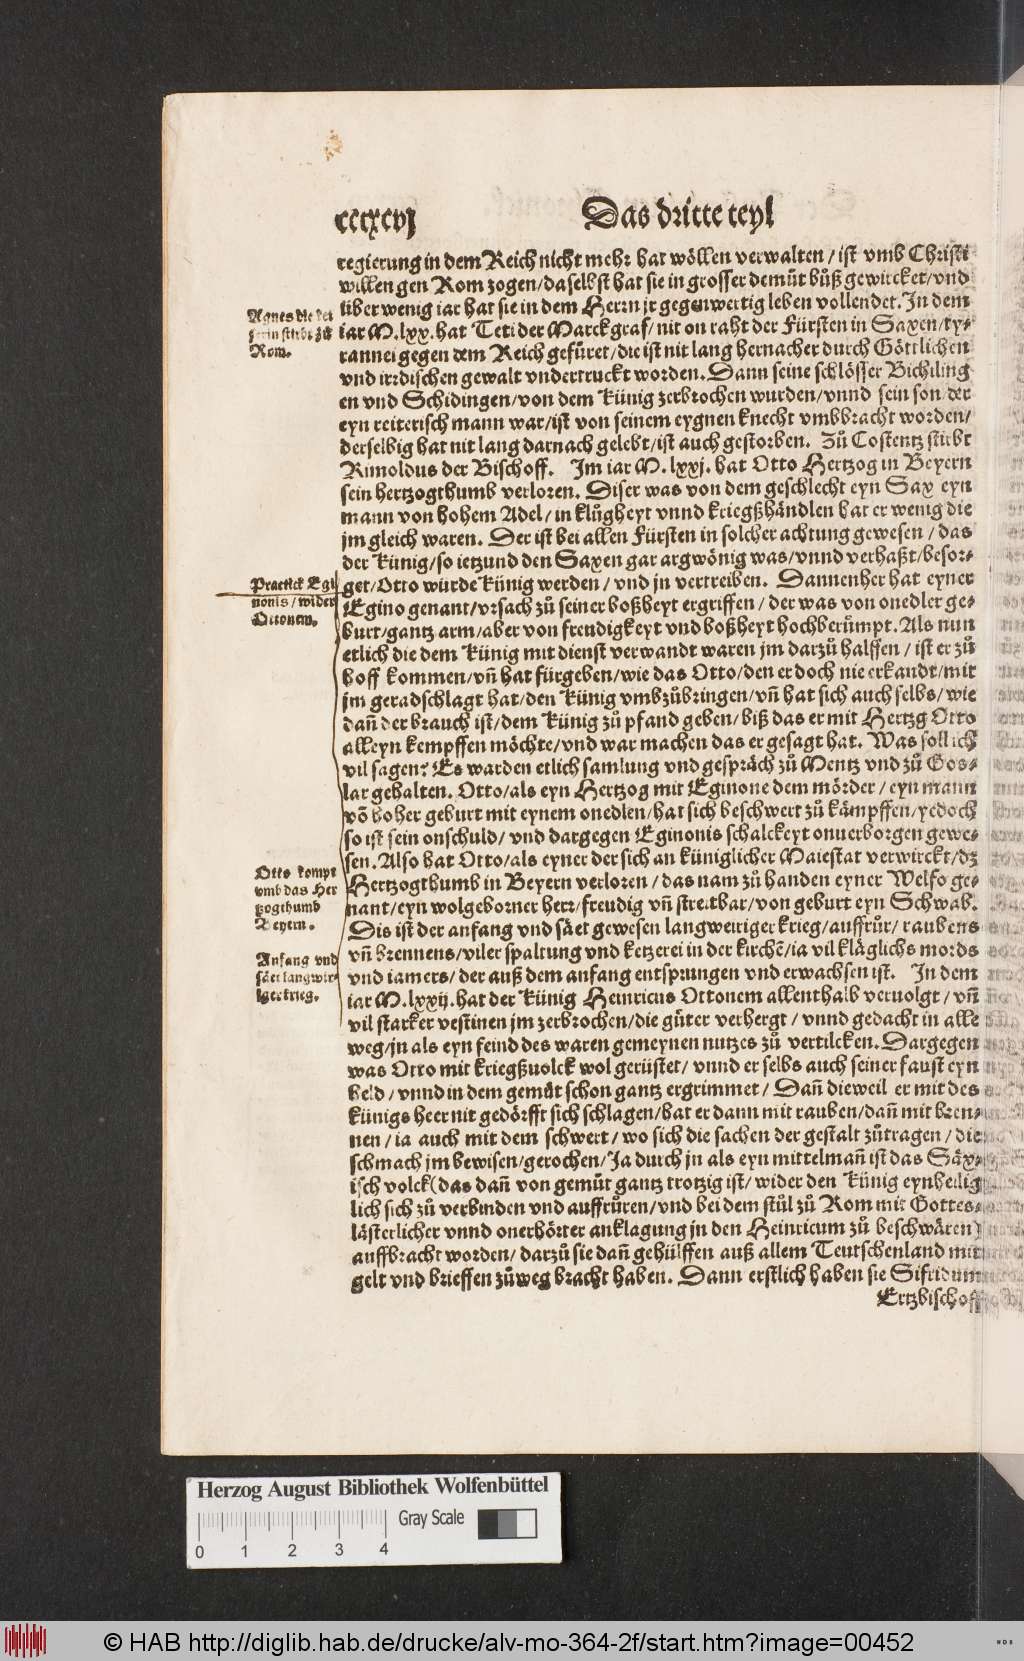 cccxcvj
Das dritte teyl
regierung in dem Reich nicht mehr hat wöllen verwalten / ist vmb Christi
willen gen Rom zogen/daselbst hat sie in grosser demůt bůß gewircket/vnd
über wenig iar hat sie in dem Herrn jr gegenwertig leben vollendet. In dem
iar M.lxx.hat Teti der Marckgraf/nit on raht der Fürsten in Saxen/ty⸗
rannei gegen dem Reich gefüret/die ist nit lang hernacher durch Göttlichen
vnd irrdischen gewalt vndertruckt worden. Dann seine schlösser Bichiling
en vnd Schidingen/von dem Künig zerbrochen wurden/vnnd sein son/der
eyn reiterisch mann war/ist von seinem eygnen knecht vmbbracht worden/
derselbig hat nit lang darnach gelebt/ist auch gestorben. Zů Costentz stirbt
Rumoldus der Bischoff. Im iar M.lxxj. hat Otto Hertzog in Beyern
sein hertzogthumb verloren. Diser was von dem geschlecht eyn Sax eyn
mann von hohem Adel/in klůgheyt vnnd kriegßhändlen hat er wenig die
jm gleich waren. Der ist bei allen Fürsten in solcher achtung gewesen / das
der Künig/so ietzund den Saxen gar argwönig was/vnnd verhaßt/besor⸗
get/Otto würde Künig werden / vnd jn vertreiben. Dannenher hat eyner
Egino genant/vrsach zů seiner boßheyt ergriffen / der was von onedler ge⸗
burt/gantz arm/aber von frendigkeyt vnd boßheyt hochberůmpt. Als nun
etlich die dem Künig mit dienst verwandt waren jm darzů halffen / ist er zů
hoff kommen/vñ hat fürgeben/wie das Otto/den er doch nie erkandt/mit
jm geradschlagt hat/den Künig vmbzůbringen/vñ hat sich auch selbs/wie
dañ der brauch ist/dem Künig zů pfand geben/biß das er mit Hertzg Otto
alleyn kempffen möchte/vnd war machen das er gesagt hat. Was soll ich
vil sagen? Es warden etlich samlung vnd gespräch zů Mentz vnd zů Gos⸗
lar gehalten. Otto/als eyn Hertzog mit Eginone dem mörder / eyn mann
võ hoher geburt mit eynem onedlen/hat sich beschwert zů kämpffen/yedoch
so ist sein onschuld/ vnd dargegen Eginonis schalckeyt onuerborgen gewe⸗
sen. Also hat Otto/als eyner der sich an küniglicher Maiestat verwirckt/dz
Hertzogthumb in Beyern verloren / das nam zů handen eyner Welfo ge⸗
nant/eyn wolgeborner herr/freudig vñ streitbar/von geburt eyn Schwab.
Dis ist der anfang vnd säet gewesen langweiriger krieg/auffrůr/ raubens
vñ brennens/viler spaltung vnd ketzerei in der kirchē/ia vil kläglichs mords
vnd iamers/der auß dem anfang entsprungen vnd erwachsen ist. In dem
iar M.lxxij.hat der Künig Heinricus Ottonem allenthalb veruolgt / vñ
vil starker vestinen jm zerbrochen/die güter verhergt / vnnd gedacht in alle
weg/jn als eyn feind des waren gemeynen nutzes zů vertilcken. Dargegen
was Otto mit kriegßuolck wol gerüstet/ vnnd er selbs auch seiner faust eyn
held / vnnd in dem gemůt schon gantz ergrimmet / Dañ dieweil er mit des
künigs heer nit gedörfft sich schlagen/hat er dann mit rauben/dañ mit bren⸗
nen / ia auch mit dem schwert / wo sich die sachen der gestalt zůtragen / die
schmach jm bewisen/gerochen/Ja durch jn als eyn mittelmañ ist das Säx⸗
isch volck(das dañ von gemůt gantz trotzig ist/ wider den Künig eynhellig
lich sich zů verbinden vnd auffrůren/vnd bei dem stůl zů Rom mit Gottes⸗
lästerlicher vnnd onerhörter anklagung jn den Heinricum zů beschwären)
auffbracht worden/ darzů sie dañ gehülffen auß allem Teutschenland mit
gelt vnd brieffen zůweg bracht haben. Dann erstlich haben sie Sifridum
Ertzbischoff
Agnes die kei
serin stirbt zů
Rom.
Practick Egi
nonis/wider
Ottonem.
Otto kompt
vmb das Her
tzogthumb
Beyern.
Anfang vnd
säet langwir⸗
iger krieg.
Herzog August Bibliothek Wolfenbüttel
Gray Scale
0 1 2 3 4
© HAB http://diglib.hab.de/drucke/alv-mo-364-2f/start.htm?image=00452